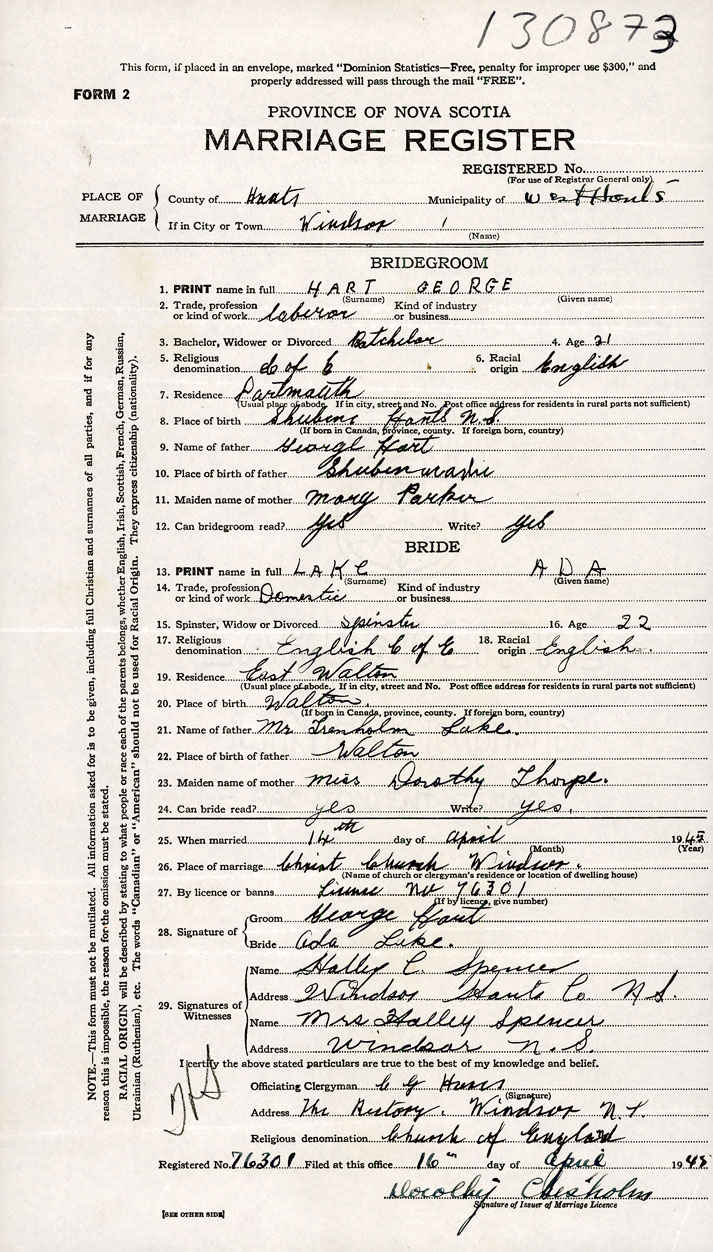 130873
This form, if placed in an envelope, marked “Dominion Statistics—Free, penalty for improper use $300,” and
properly addressed will pass through the mail “FREE”.
FORM 2
PROVINCE OF NOVA SCOTIA
MARRIAGE REGISTER
REGISTERED No.
(For use of Registrar General only)
PLACE OF MARRIAGE
County of Hants Municipality of West Hants
If in City or Town Windsor
(Name)
BRIDEGROOM
1. PRINT name in full HART GEORGE
(Surname) (Given name)
2. Trade, profession or kind of work laberor Kind of industry or business
3. Bachelor, Widower or Divorced Batchelor 4. Age 21
5. Religious denomination C of E 6. Racial origin English
7. Residence Dartmouth
(Usual place of abode. If in city, street and No. Post office address for residents in rural parts not sufficient)
8. Place of birth Shuben Hants N.S.
(If born in Canada, province, county. If foreign born, country)
9. Name of father George Hart
10. Place of birth of father
11. Maiden name of mother Mary Parker
12. Can bridegroom read? Yes Write? Yes
BRIDE
13. PRINT name in full LAKE ADA
(Surname) (Given name)
14. Trade, profession or kind of work Domestic Kind of industry or business
15. Spinster, Widow or Divorced Spinster 16. Age 22
17. Religious denomination English C of E 18. Racial origin English.
19. Residence East Walton
(Usual place of abode. If in city, street and No. Post office address for residents in rural parts not sufficient)
20. Place of birth Walton.
(If born in Canada, province, county. If foreign born, country)
21. Name of father Mr Trenholm Lake.
22. Place of birth of father Walton
23. Maiden name of mother Miss Dorothy Thorpe.
24. Can bride read? yes Write? yes.
25. When married 14th day of April 1945
(Month) (Year)
26. Place of marriage Christ Church Windsor.
(Name of church or clergyman's residence or location of dwelling house)
27. By licence or banns License No 76301
(If by licence, give number)
28. Signature of
Groom George Hart
Bride Ada Lake.
29. Signatures of Witnesses
Name Halley C. Spencer
Address Windsor Hants Co. N.S.
Name Mrs Halley Spencer
Address Windsor N.S.
I certify the above stated particulars are true to the best of my knowledge and belief.
Officiating Clergyman C G
(Signature)
Address The Rectory. Windsor N.S.
Religious denomination Church of England
Registered No. 76301 Filed at this office 16" day of April 1945
Dorothy Chisholm
Signature of Issuer of Marriage Licence
[SEE OTHER SIDE]
NOTE.—This form must not be mutilated. All information asked for is to be given, including full Christian and surnames of all parties, and if for any
reason this is impossible, the reason for the omission must be stated.
RACIAL ORIGIN will be described by stating to what people or race each of the parents belongs, whether English, Irish, Scottish, French, German, Russian,
Ukrainian (Ruthenian), etc. The words “Canadian” or “American” should not be used for Racial Origin. They express citizenship (nationality).